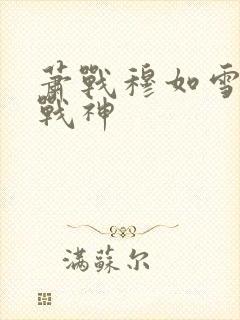 蕭戰穆如雪
戰神
滿蘇尔